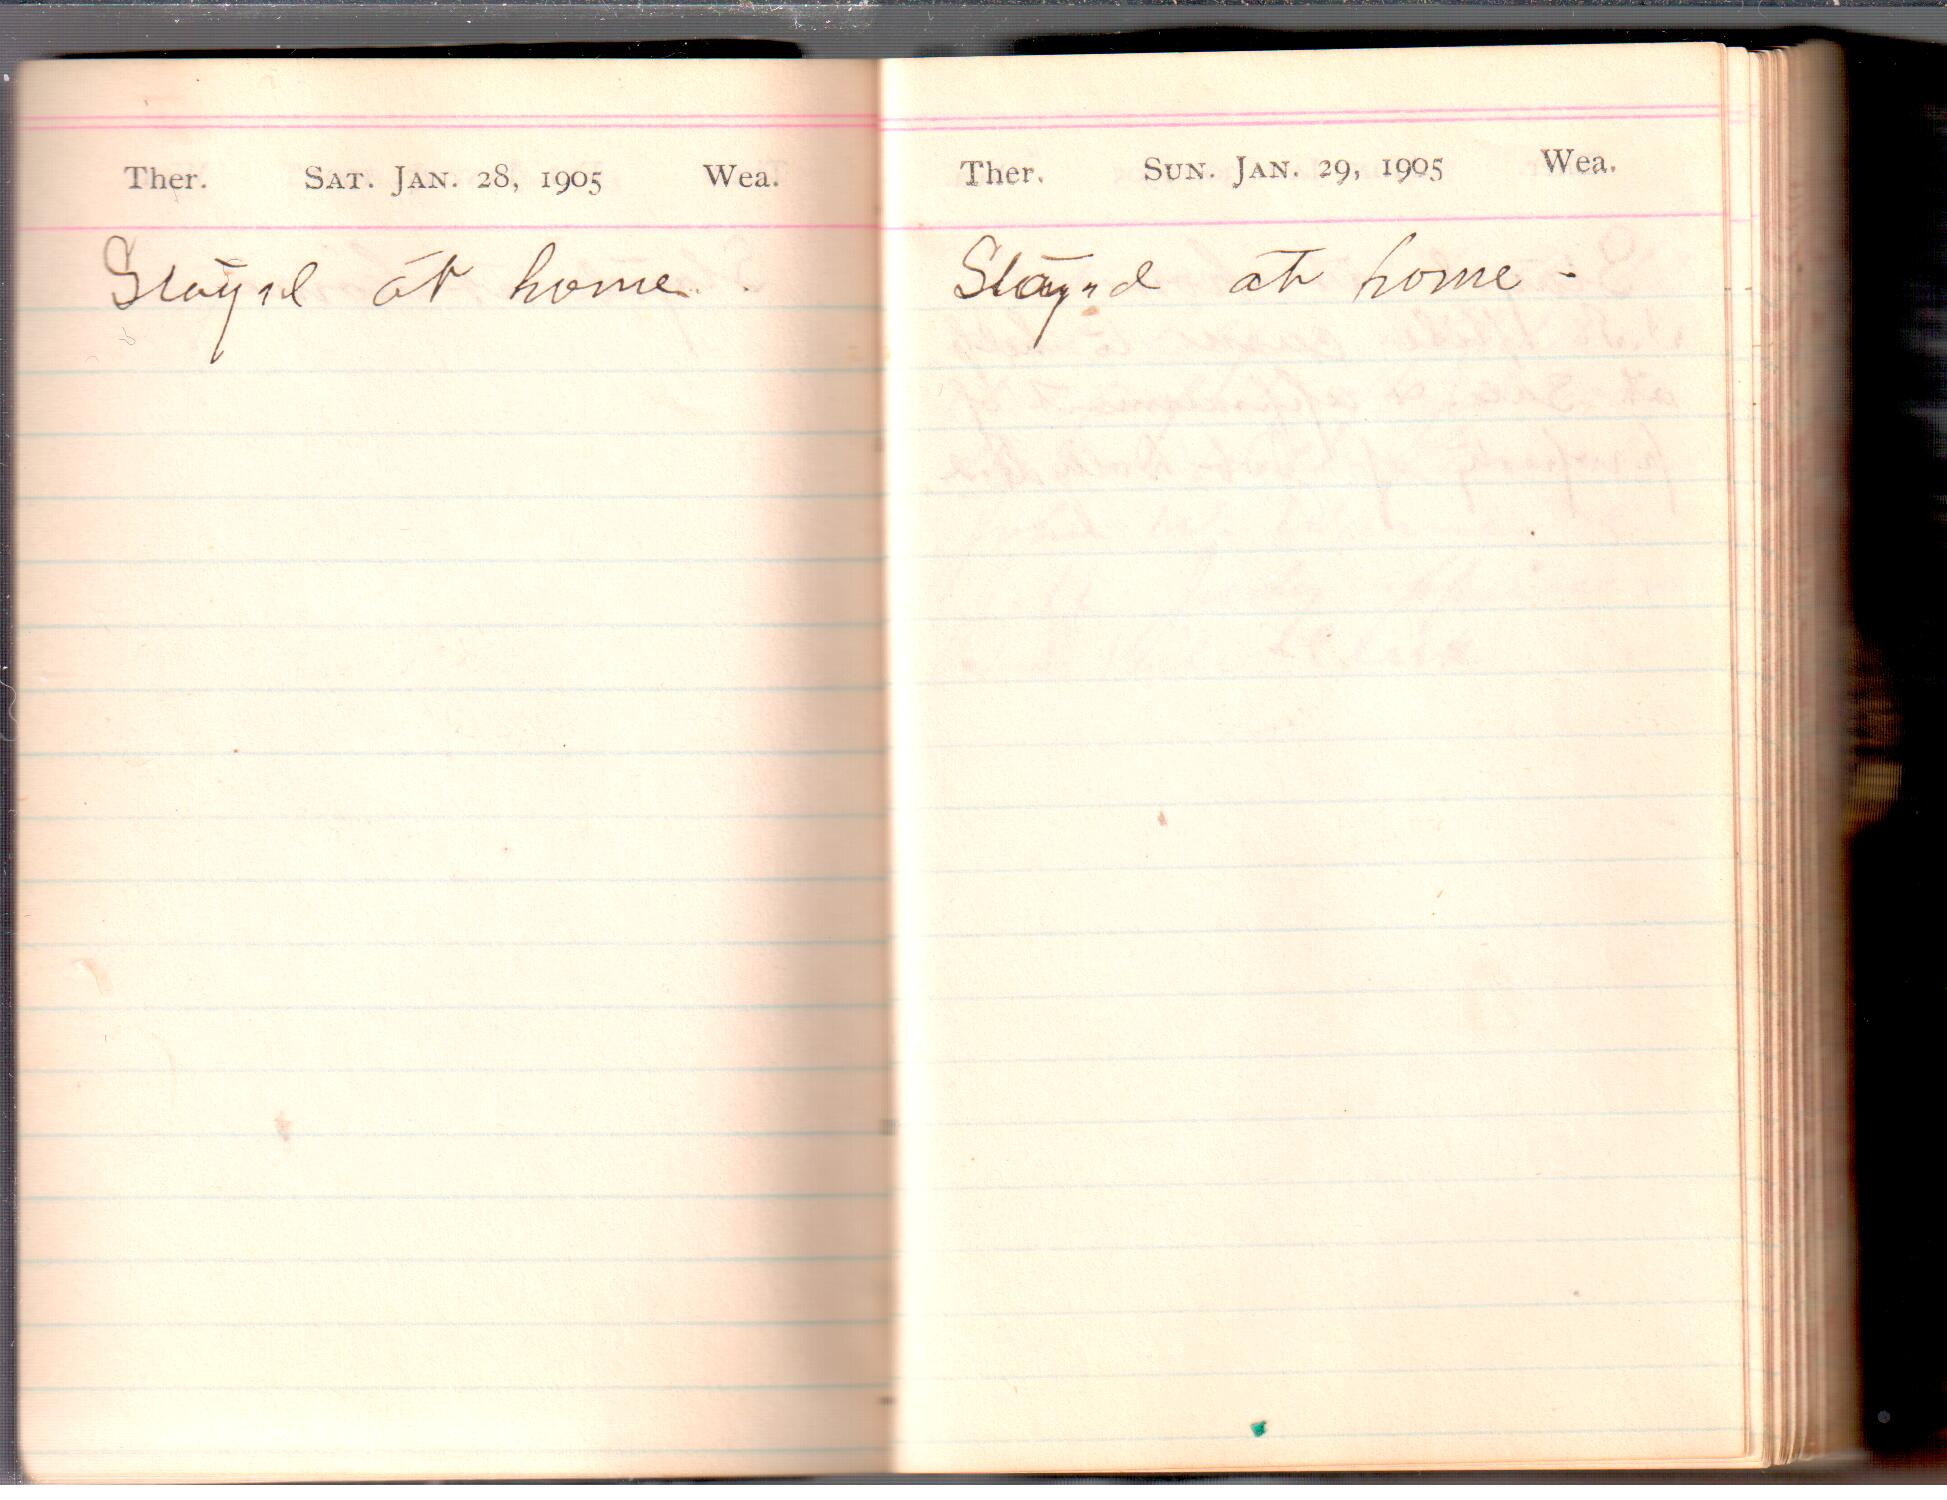 Ther. SAT. JAN. 28, 1905 Wea.
Stayed at home.
Ther. SUN. JAN. 29, 1905 Wea.
Stayed at home -